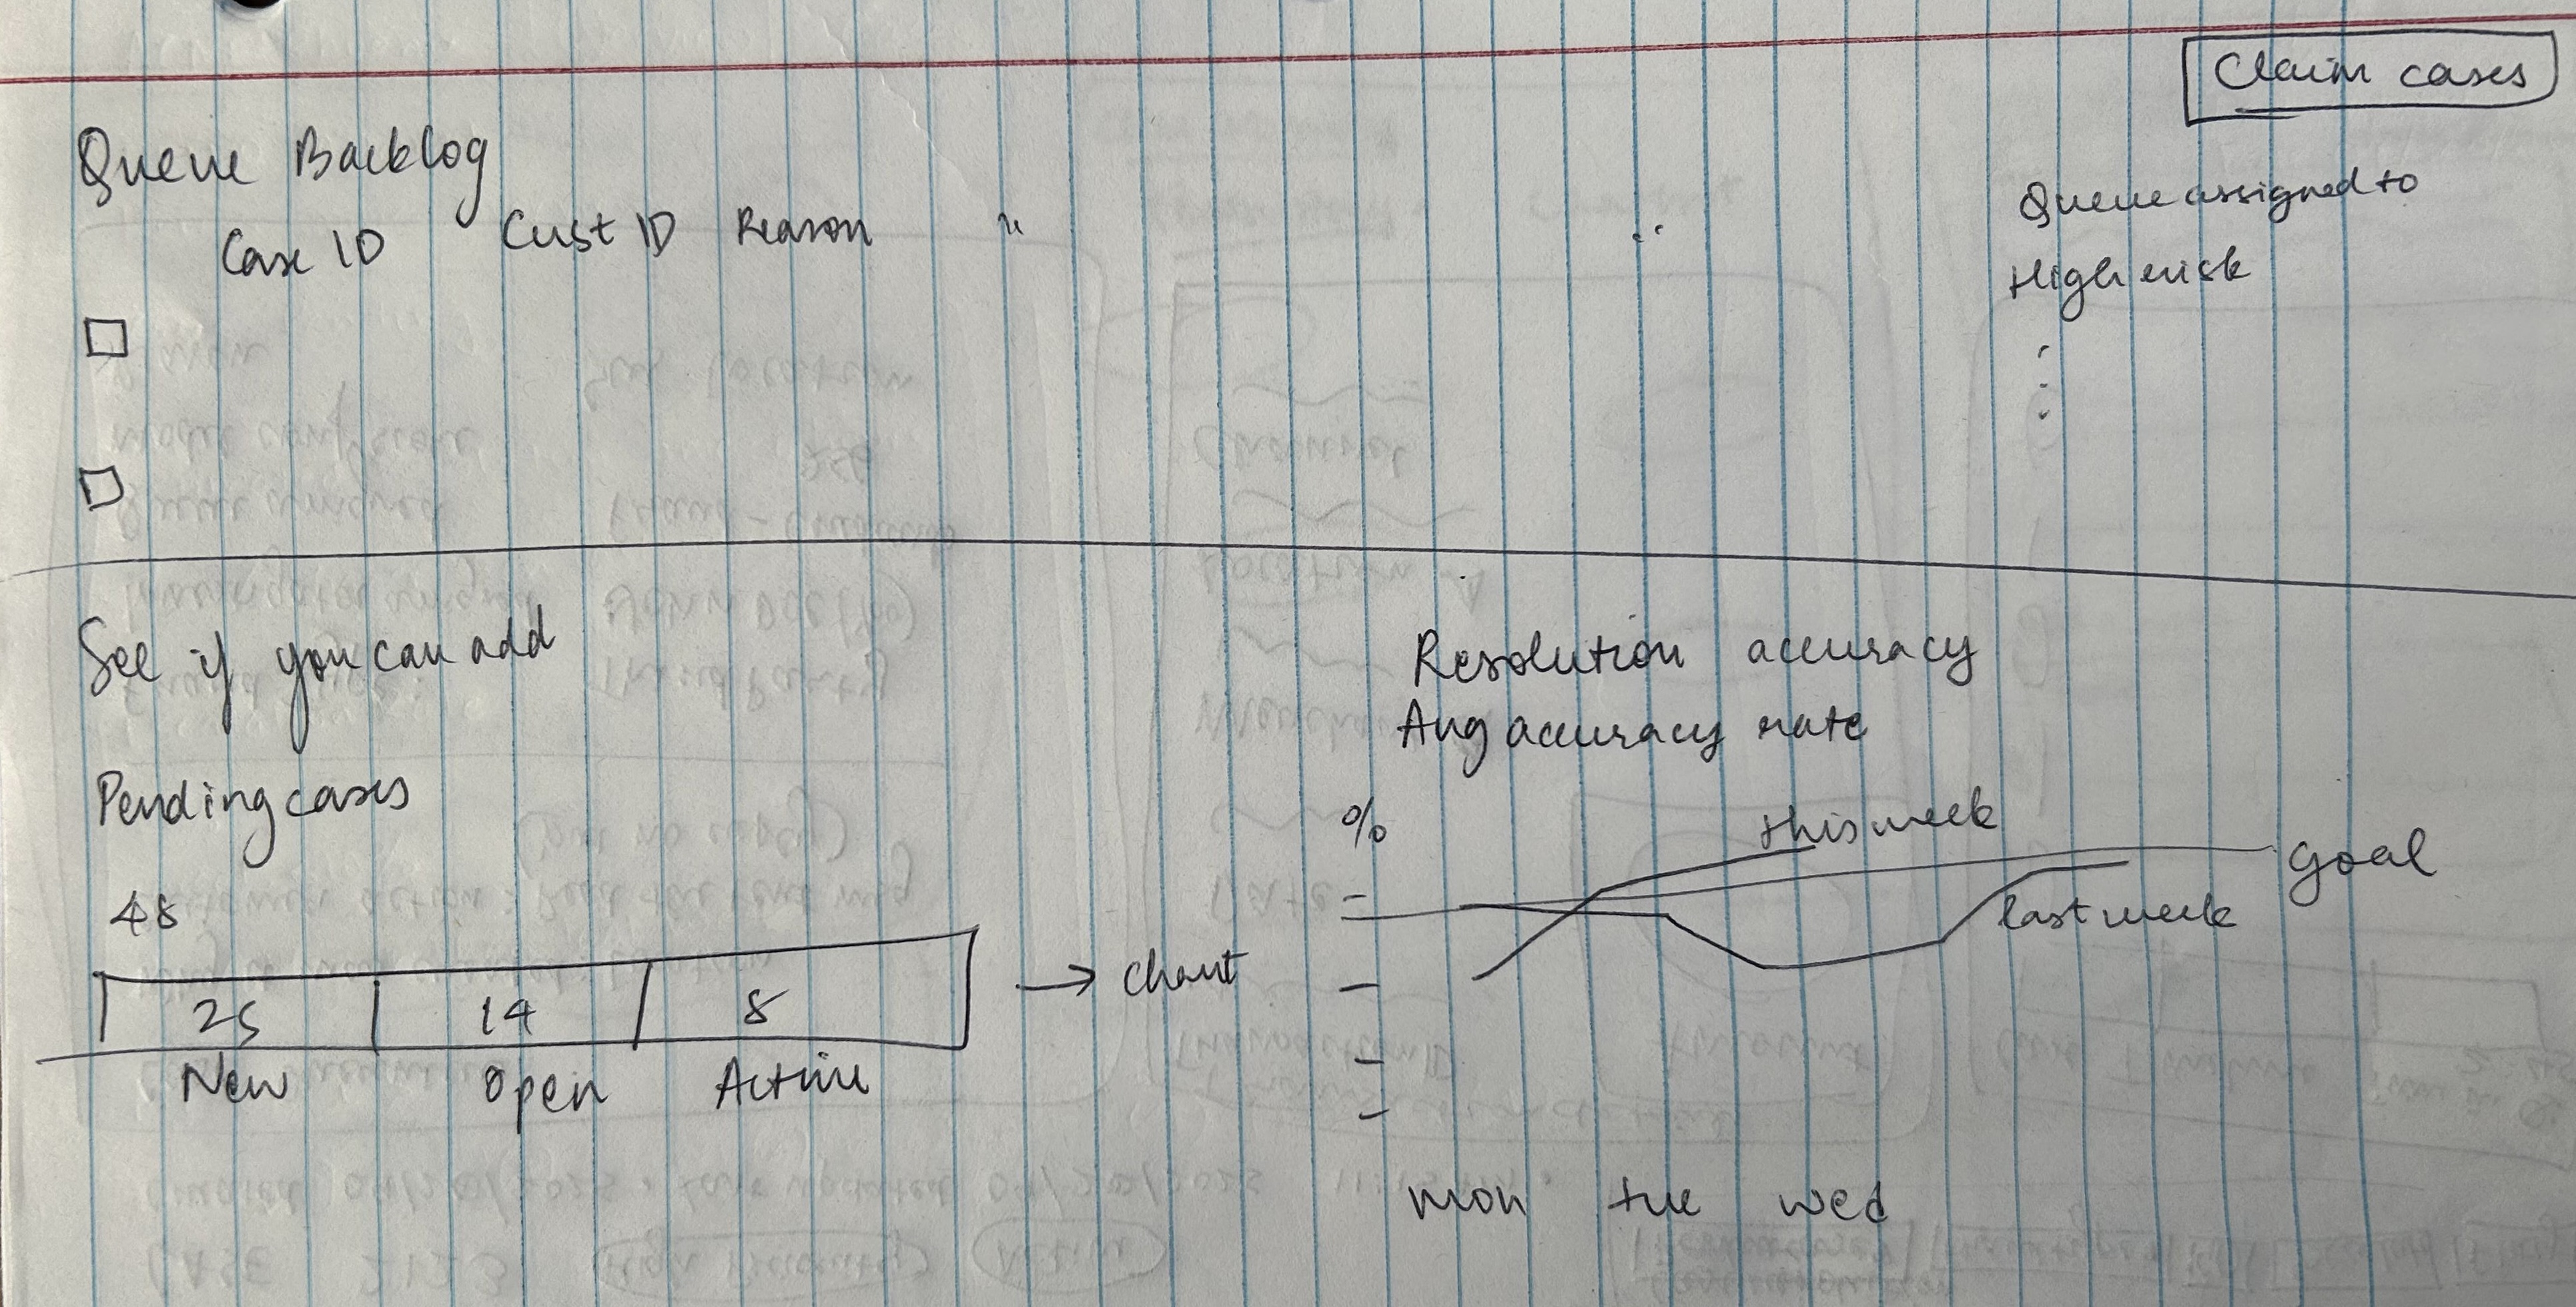 Claim cases
Queue Backlog
Case ID Cust ID Reason " ..
Queue assigned to
High risk
See if you can add
Pending cases
48
25 14 8
New Open Active
→ Chart
Resolution accuracy
Avg accuracy rate
%
this week
Goal
last week
mon tue wed